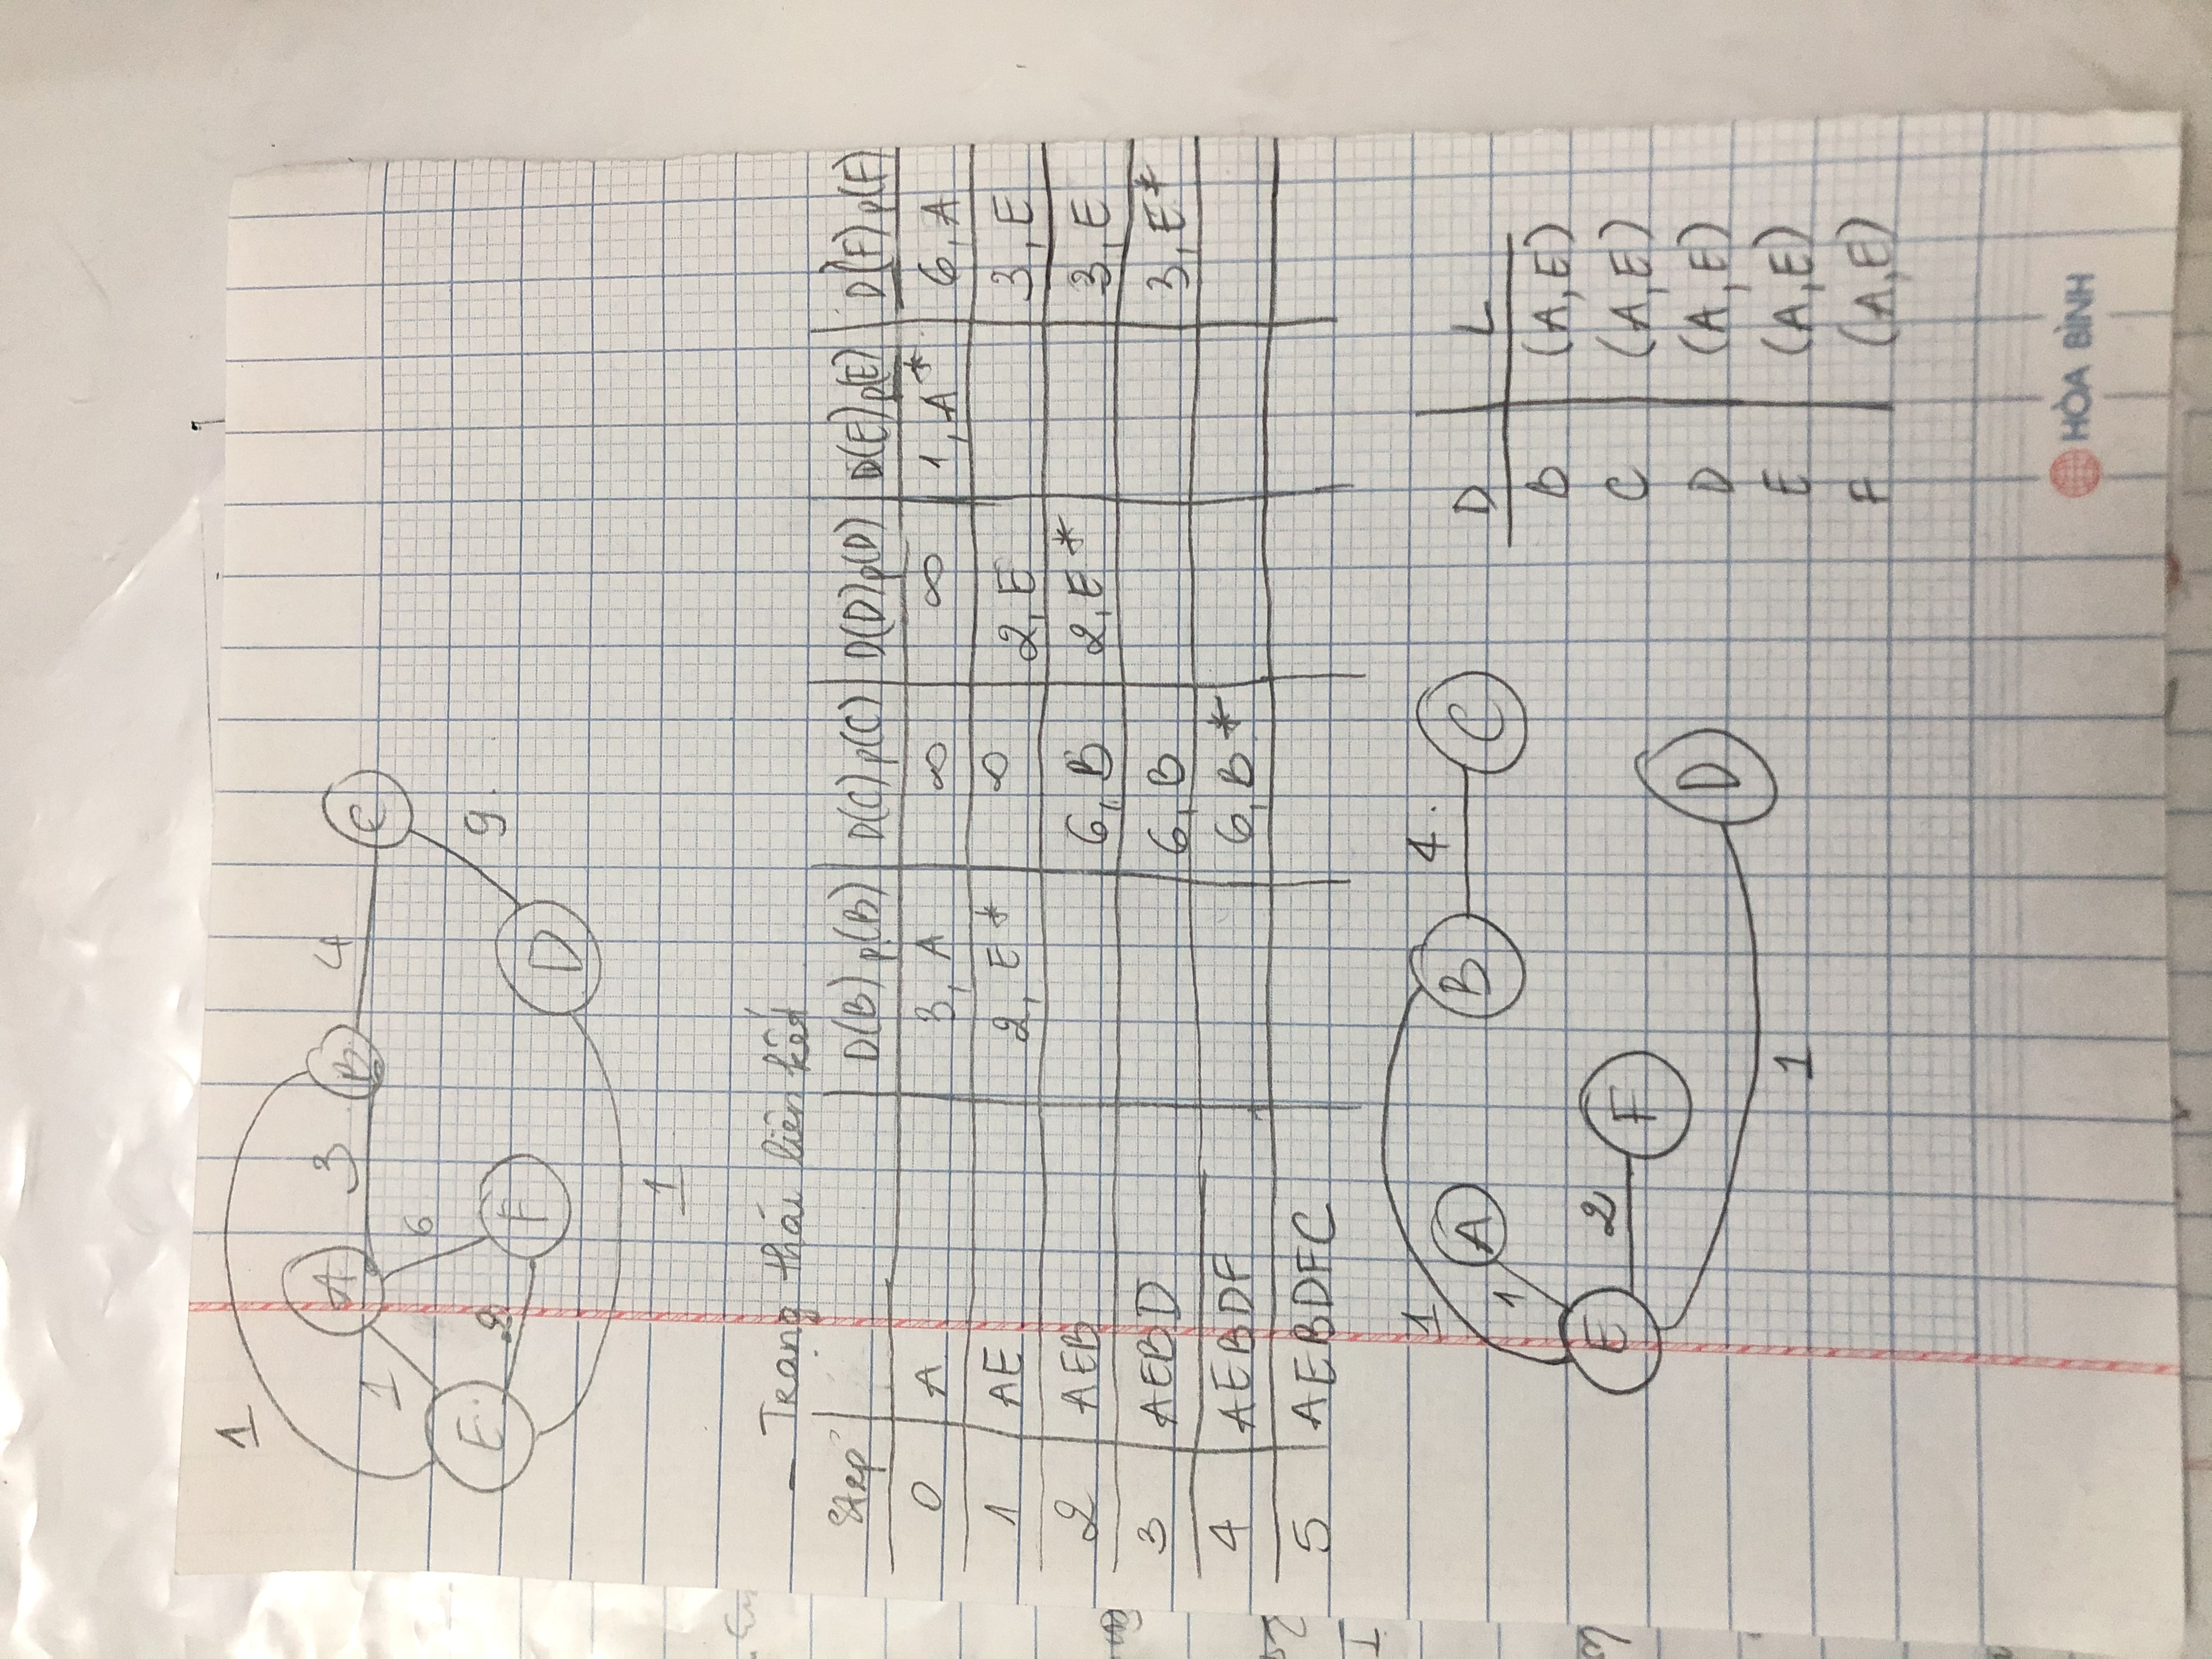 1
A 3 B 4 C
1 6
E 2 F D 9
1
- Trạng thái liên kết
Step D(B) p(B) D(C) p(C) D(D) p(D) D(E) p(E) D(F) p(F)
0 A 3, A ∞ ∞ 1, A* 6, A
1 AE 2, E* ∞ 2, E 3, E
2 AEB 6, B 2, E* 3, E
3 AEBD 6, B 3, E*
4 AEBDF 6, B*
5 AEBDFC
1 A B 4. C
1
E 2 F D
1
D L
B (A,E)
C (A,E)
D (A,E)
E (A,E)
F (A,E)
HÒA BÌNH